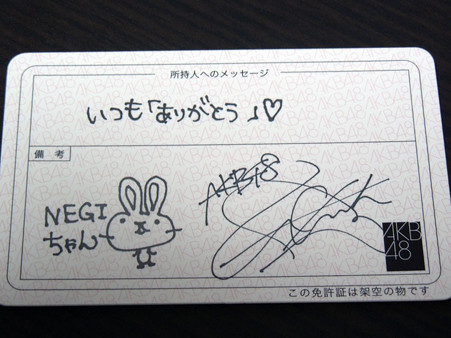 所持人へのメッセージ
いつも「ありがとう」♡
備考
AKB48
NEGI
ちゃん
AKB
48
この免許証は架空の物です